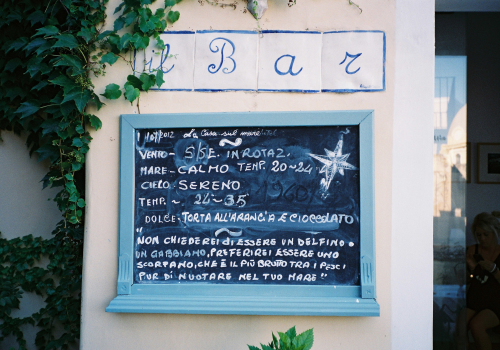 il Bar
2012 La Casa sul mare
VENTO - S/SE. IN ROTAZ.
MARE - CALMO TEMP. 20-24
CIELO: SERENO
TEMP. ~ 24-35
DOLCE: TORTA ALL'ARANCIA E CIOCCOLATO
"NON CHIEDEREI di ESSERE UN DELFINO O
UN GABBIANO, PREFERIREI ESSERE UNO
SCORFANO, CHE È IL PIÙ BRUTTO TRA I PESCI
PUR DI NUOTARE NEL TUO MARE"